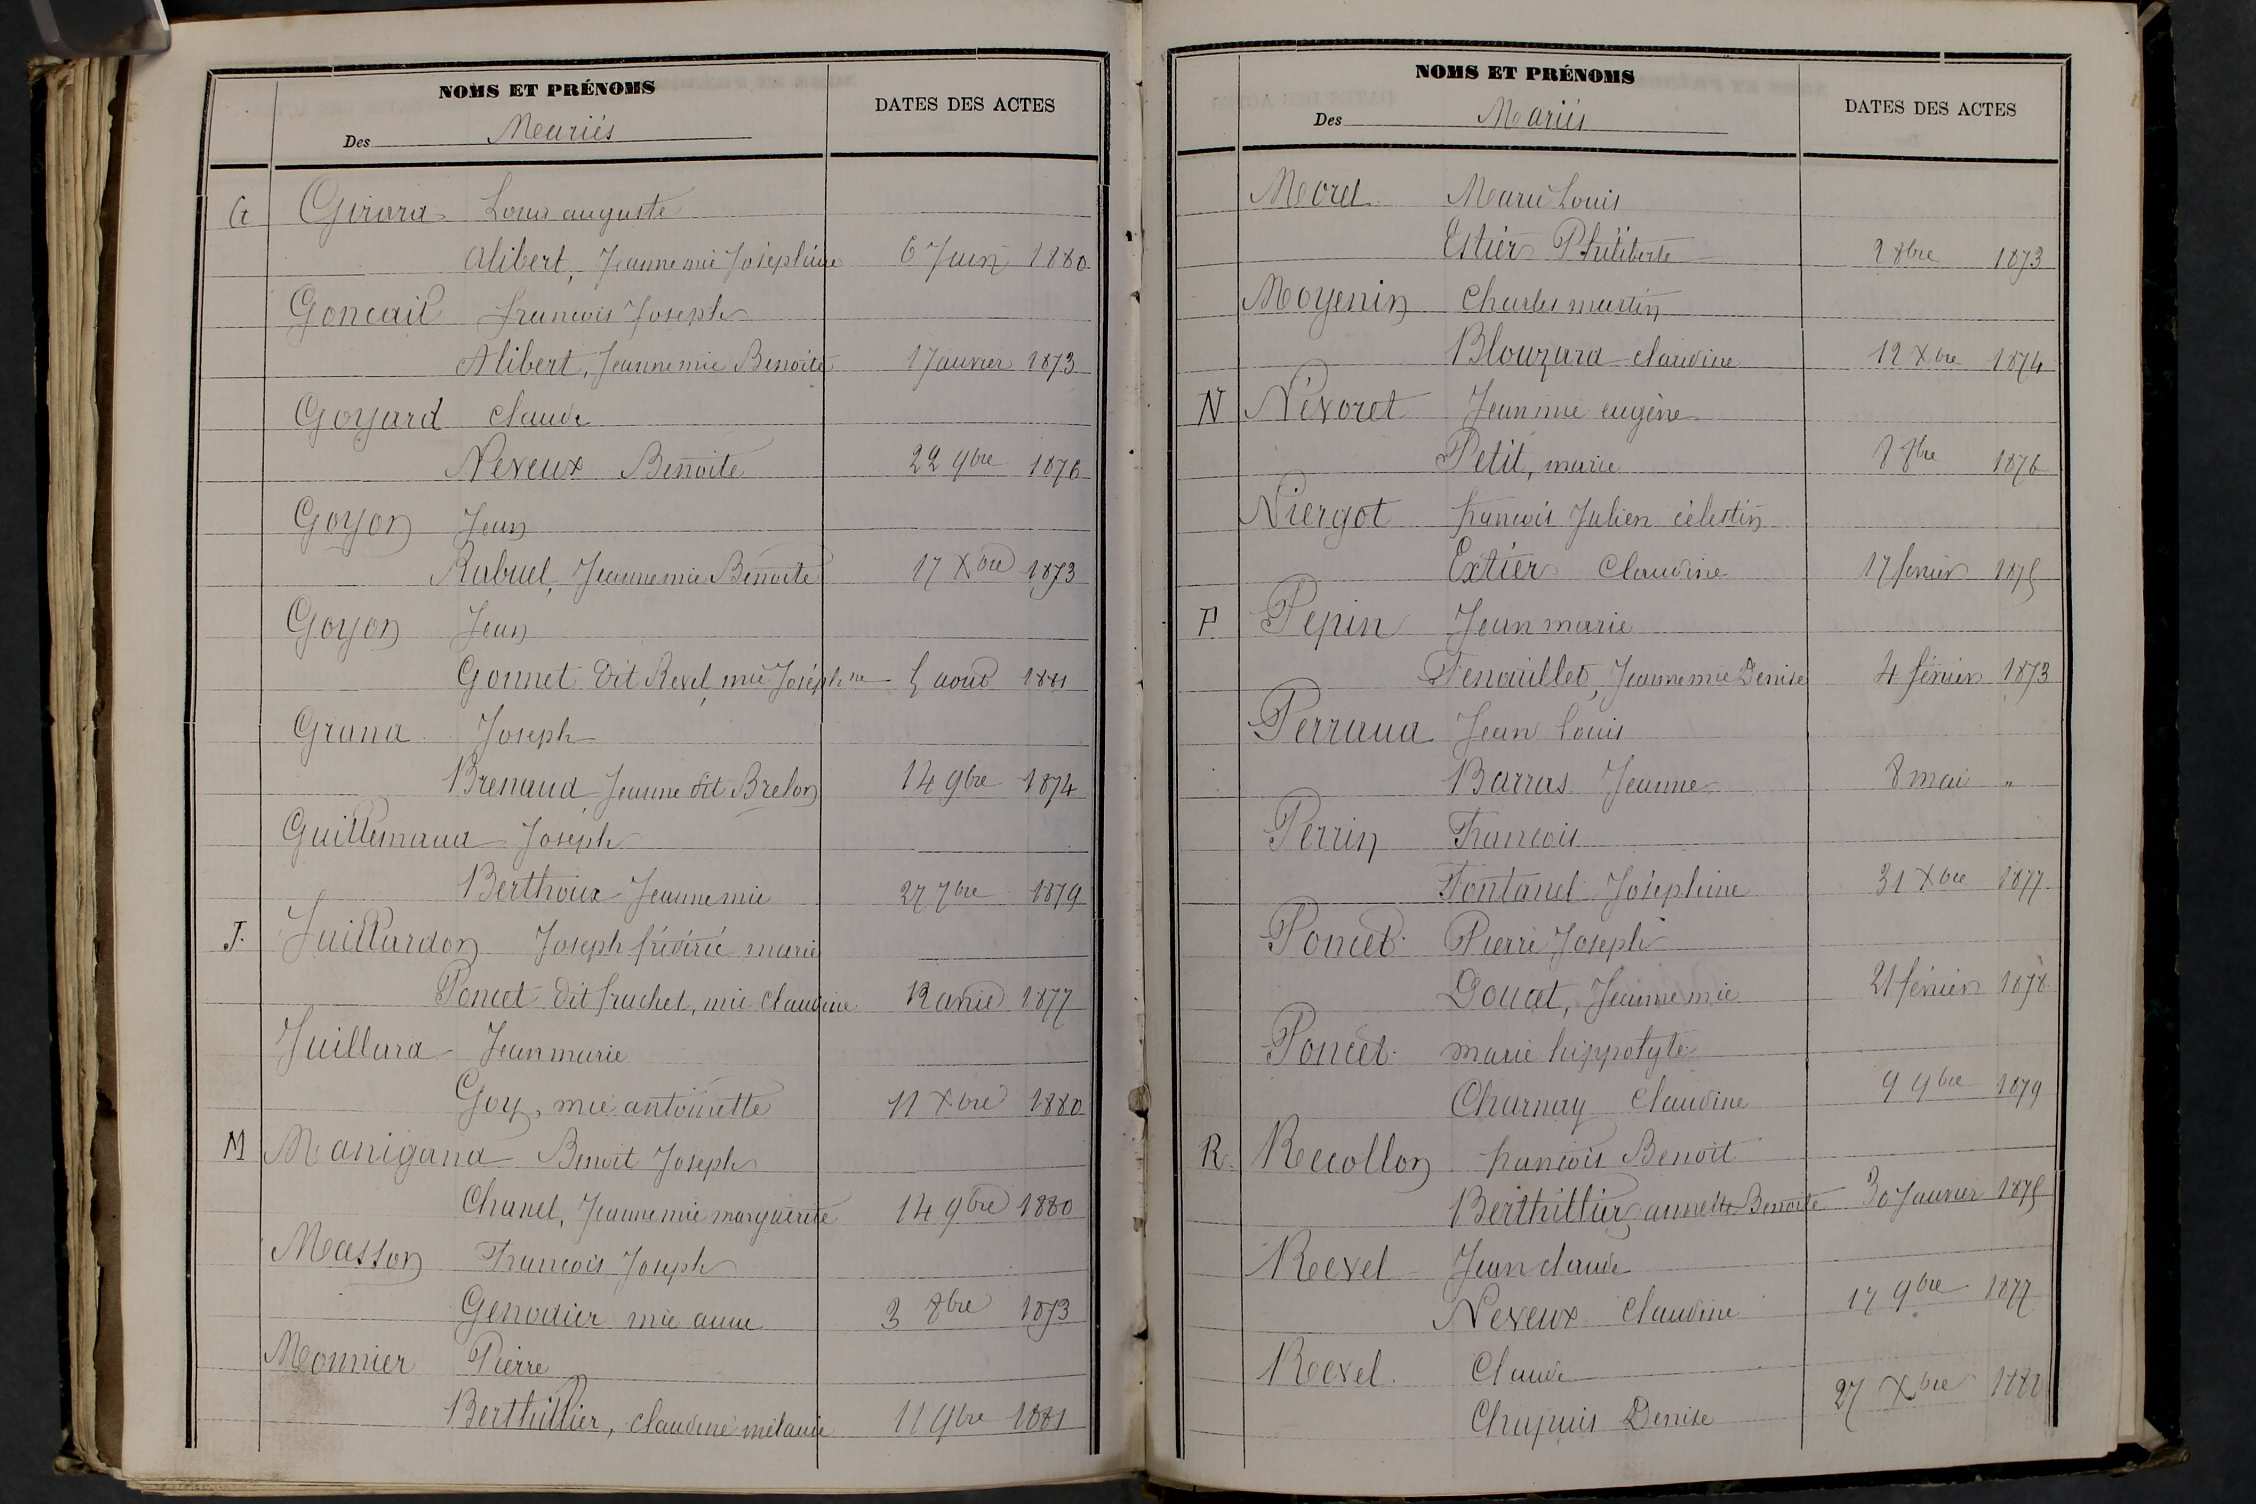 NOMS ET PRÉNOMS
Des Mariés
DATES DES ACTES
G Girard Louis auguste
Alibert, Jeanne mie Joséphine 6 Juin 1880
Goncail francois Joseph
Alibert, Jeanne mie Benoite 1 Janvier 1873
Goyard Claude
Neveux Benoite 22 9bre 1876
Goyon Jean
Rabuel, Jeanne mie Benoite 17 Xbre 1873
Goyon Jean
Gonnet dit Revel, mie Joséphne 5 aout 1881
Grand Joseph
Brenaud Jeanne dit Brelon 14 9bre 1874
Guillemaud Joseph
Berthoux Jeanne mie 27 7bre 1879
J. Juillardon Joseph frédéric marie
Poncet dit frachet, mie Claudine 12 avril 1877
Juillard Jean marie
Goy, mie antoinette 11 Xbre 1880
M Manigand Benoit Joseph
Chanel, Jeanne mie marguerite 14 9bre 1880
Masson Francois Joseph
Genodier mie anne 3 8bre 1873
Monnier Pierre
Berthillier, claudine mélanie 11 9bre 1881
NOMS ET PRÉNOMS
Des Mariés
DATES DES ACTES
Morel Marie Louis
Estier Philiberte 2 8bre 1873
Moyenin Charles martin
Blouzard claudine 12 Xbre 1874
N Névoret Jean mie eugène
Petit, marie 8 8bre 1876
Niergot francois Julien célestin
Extier Claudine 17 février 1875
P. Pepin Jean marie
Fenouillet, Jeanne mie Denise 4 février 1873
Perraud Jean Louis
Barras Jeanne 8 mai "
Perrin Francois
Fontanel Joséphine 31 Xbre 1877
Poncet Pierre Joseph
Doucet, Jeanne mie 21 février 1878
Poncet marie hippolyte
Charnay Claudine 9 9bre 1879
R. Recollon francois Benoit
Berthillier, annette Benoite 30 Janvier 1875
Revel Jean claude
Neveux Claudine 17 9bre 1877
Revel Claude
Chapuis Denise 27 Xbre